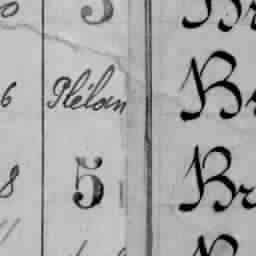 5 Br
6 Plélan Br
8 5 Br